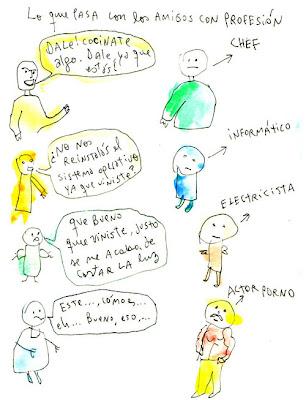 Lo que PASA con los AMIGOS CON PROFESIÓN
DALE! COCINATE
algo. Dale, ya que
estás!
CHEF
¿No nos
Reinstalás el
sistema operativo
ya que viniste?
INFORMÁTICO
QUE BUENO
que VINISTE, JUSTO
se me acaba de
CORTAR LA LUZ
ELECTRICISTA
ESTE..., CÓMO ES,...
eh... Bueno, eso,...
ACTOR PORNO